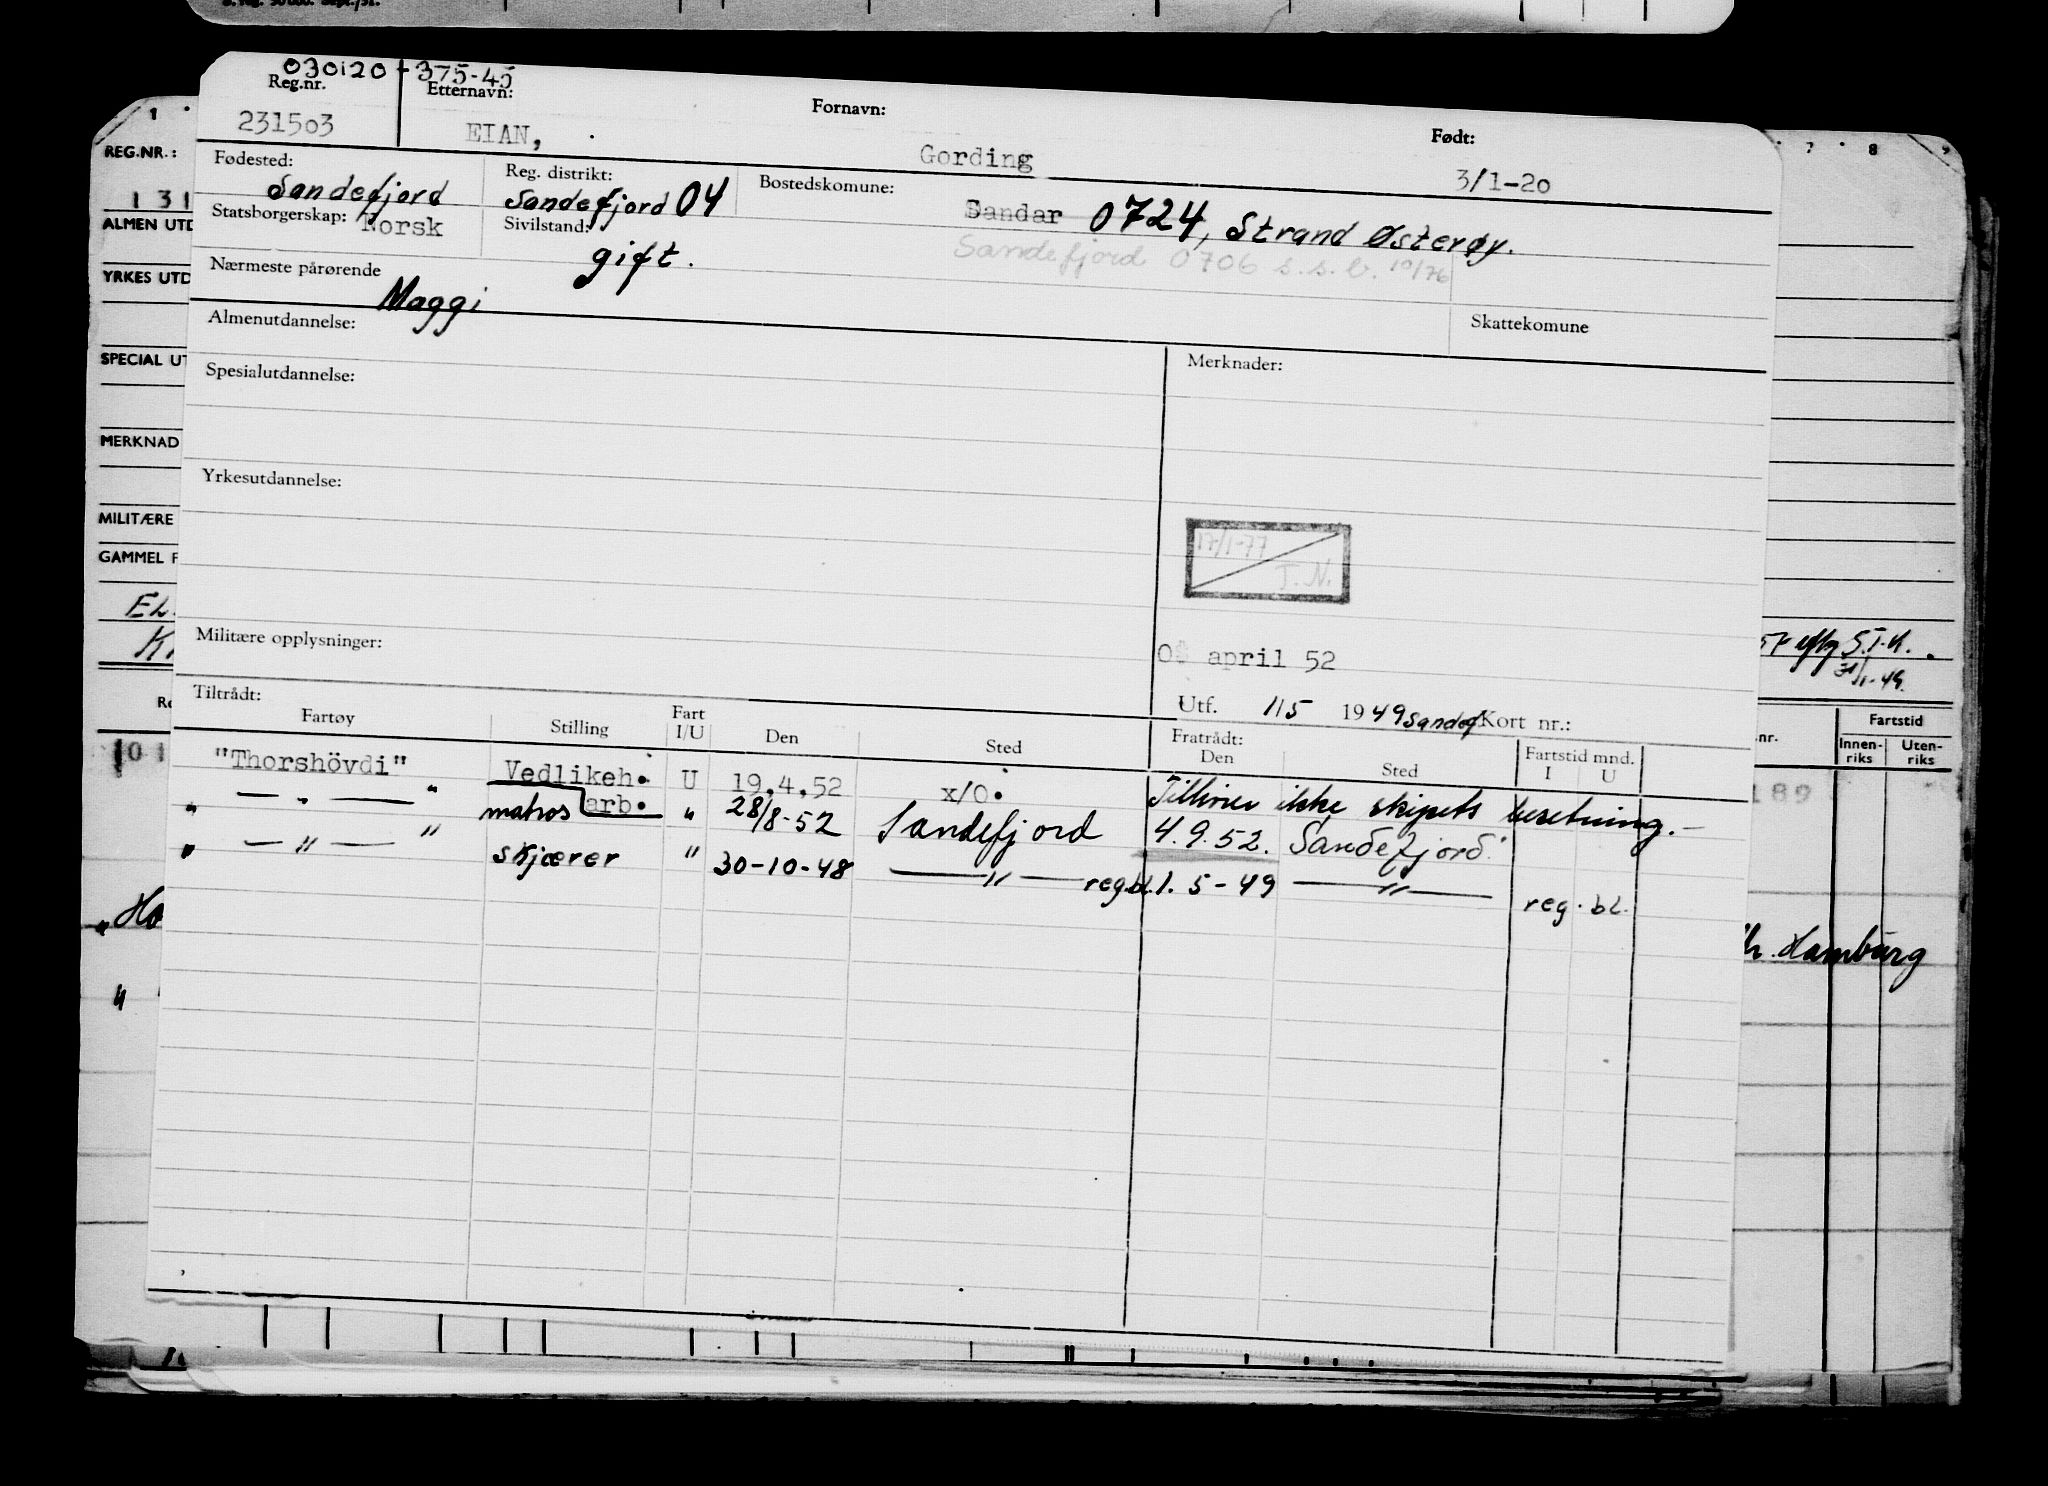 030120-375-45
Reg.nr. Etternavn: Fornavn: Født:
231503 EIAN, Gording 3/1-20
Fødested: Reg. distrikt: Bostedskomune:
Sandefjord Sandefjord 04 Sandar 0724, Strand Østerøy.
Statsborgerskap: Norsk Sivilstand: gift. Sandefjord 0706 s.s.b. 10/76
Nærmeste pårørende
Maggi
Almenutdannelse: Skattekomune
Spesialutdannelse: Merknader:
Yrkesutdannelse:
17/1-77
T.N.
Militære opplysninger:
april 52
Utf. 1/5 1949 Sandef Kort nr.:
Tiltrådt: Fratrådt:
Fartøy Stilling Fart I/U Den Sted Den Sted Fartstid mnd. I U
"Thorshövdi" Vedlikeh. arb. U 19.4.52 x/O. Tilhører ikke skipets besetning.-
" — " — " matros " 28/8-52 Sandefjord 4.9.52. Sandefjord.
" — " — " skjærer " 30-10-48 — " — reg.bl. 1.5-49 — " — reg. bl.
REG.NR.:
131
ALMEN UTD
YRKES UTD
SPECIAL UT
MERKNAD
MILITÆRE
GAMMEL F
7 8 9
S.I.K.
31/1-49.
nr. Fartstid
Innen-riks Uten-riks
189
"Ho
Hamburg